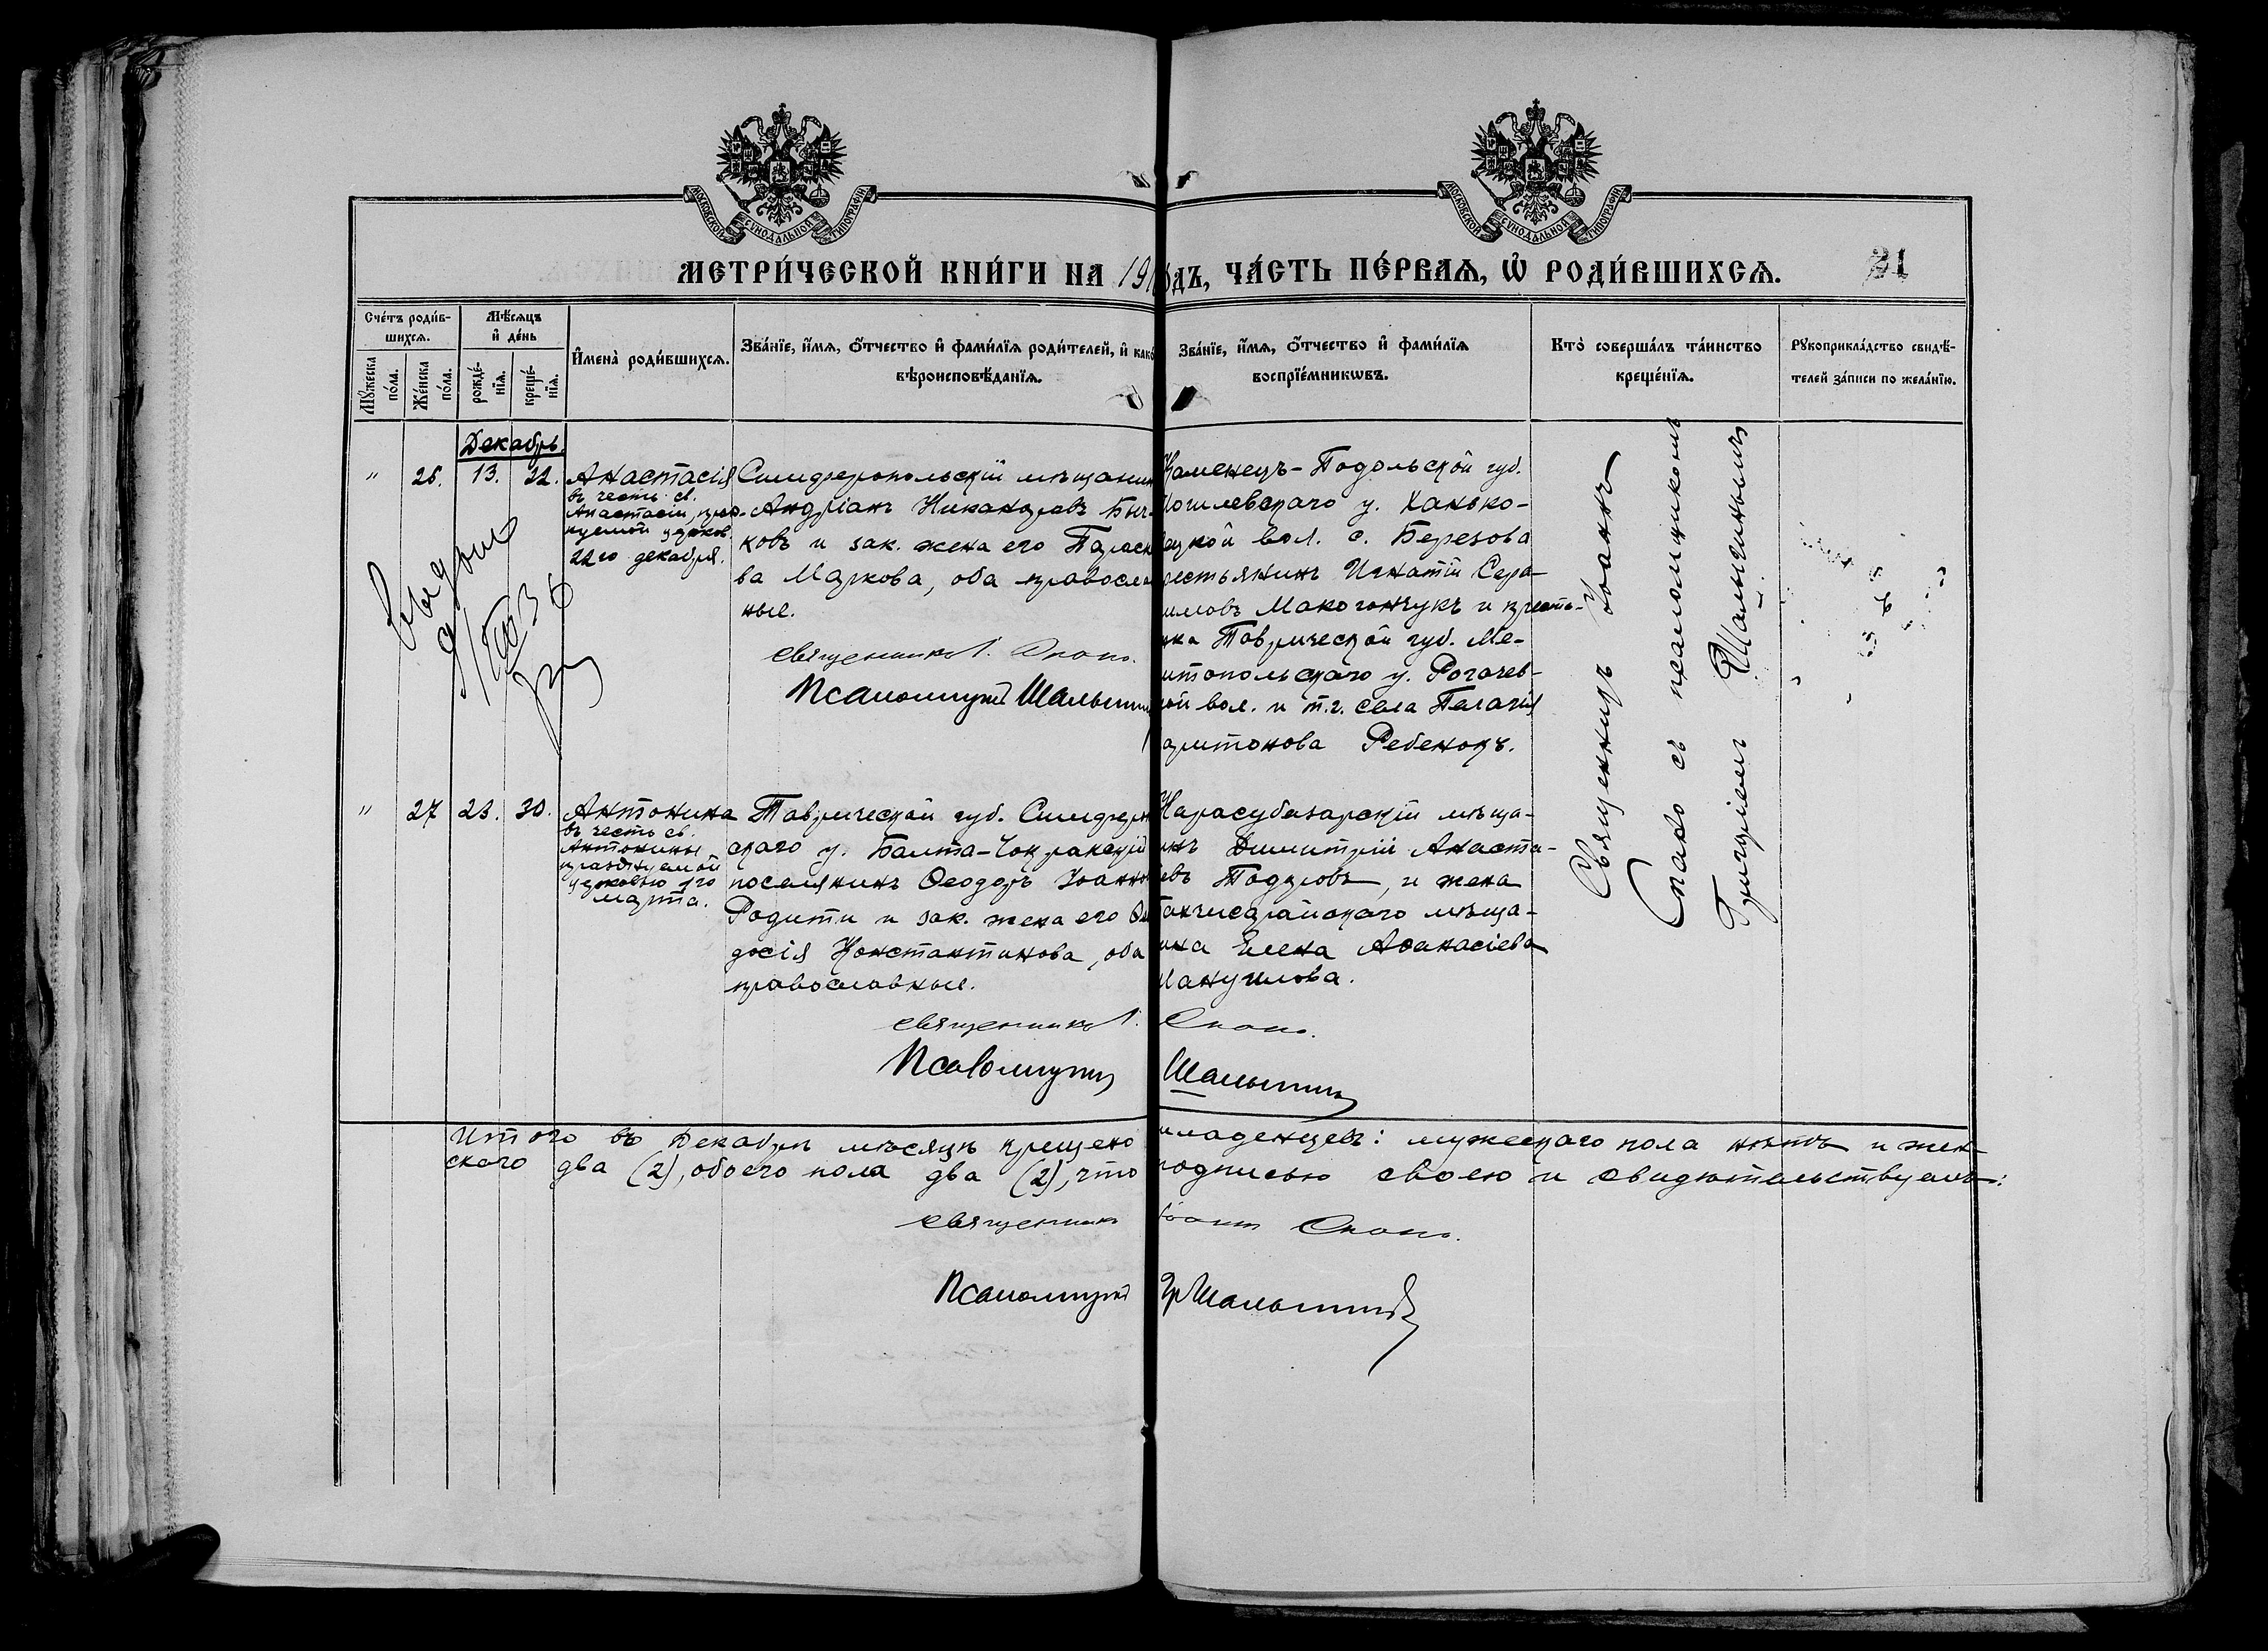 МОСКОВСКОЙ СѴНОДАЛЬНОЙ ТИПОГРАФІИ
МОСКОВСКОЙ СѴНОДАЛЬНОЙ ТИПОГРАФІИ
МЕТРИ́ЧЕСКОЙ КНИ́ГИ НА 191
ОДЪ, ЧА́СТЬ ПЕ́РВАѦ, Ѡ҆ РОДИ́ВШИХСѦ.
21
Сче́тъ роди́в-
шихсѧ.
Мꙋ́жеска
по́ла.
Же́нска
по́ла.
Мѣ́сѧцъ
и҆ де́нь
рожде́-
нїѧ.
креще́-
нїѧ.
И҆мена̀ роди́вшихсѧ.
Зва́нїе, и҆́мѧ, ѻ҆́тчество и҆ фами́лїѧ роди́телей, и҆ како
вѣроисповѣ́данїѧ.
Зва́нїе, и҆́мѧ, ѻ҆́тчество и҆ фами́лїѧ
воспрїе́мникѡвъ.
Кто̀ соверша́лъ та́инство
креще́нїѧ.
Рꙋкоприкла́дство свидѣ́-
телей за́писи по жела́нїю.
Декабрь
" 26. 13. 22.
Анастасія
въ честь св.
Анастасіи, празд-
нуемой церков.
22го декабря.
Симферопольскій мѣщанин
Андріанъ Никаноровъ Быч-
ковъ и зак. жена его Параск
ва Маркова, оба правосла
ные.
священникъ І. Спано.
Псаломщикъ Шалыгин
Каменецъ-Подольской губ.
Могилевскаго у. Ханько-
ецкой вол. с. Березова
рестьянинъ Игнатій Сера-
имовъ Макогончукъ и кресть-
нка Таврической губ. Ме-
итопольскаго у. Рогачев-
кой вол. и т.г. села Пелагія
аритонова Ребенокъ.
Священникъ Іоаннъ
Спано съ псаломщикомъ
Григоріемъ Шалыгинымъ
" 27 23. 30.
Антонина
въ честь св.
Антонины
празднуемой
церковью 1го
марта.
Таврической губ. Симфероп
скаго у. Балта-Чокракскій
поселянинъ Ѳеодоръ Іоанно
Родити и зак. жена его Ѳео
досія Константинова, оба
православные.
Карасубазарскій мѣща-
инъ Димитрій Анаста-
евъ Тодуровъ, и жена
Бахчисарайскаго мѣща-
ина Елена Аѳанасіева
Манушлова.
священникъ І. Спано.
Псаломщикъ Шалыгинъ
Итого въ Декабрѣ мѣсяцѣ крещено младенцевъ: мужескаго пола нѣтъ и жен-
скаго два (2), обоего пола два (2), что подписью своею и свидѣтельствуемъ:
священникъ Іоаннъ Спано.
Псаломщикъ Гр Шалыгинъ